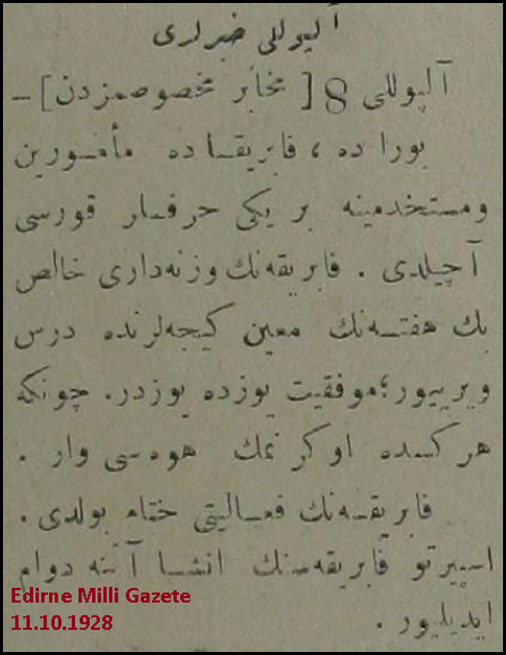 آلپوللی خبرلری
آلپوللی 8 [ مخابر مخصوصمزدن ] –
بوراده ، فابریقه‌ده مأمورین
ومستخدمینه بر یکی حرفلر قورسی
آچیلدی . فابریقه‌نك وزنه‌داری خالص
بك هفته‌نك معین کیجه‌لرنده درس
ویرییور ؛ موفقیت یوزده یوزدر. چونکه
هرکسده اوکرنمك هوه‌سی وار .
فابریقه‌نك فعالیتی ختام بولدی .
اسپیرتو فابریقه‌سنك انشاآتنه دوام
ایدیلیور .
Edirne Milli Gazete
11.10.1928